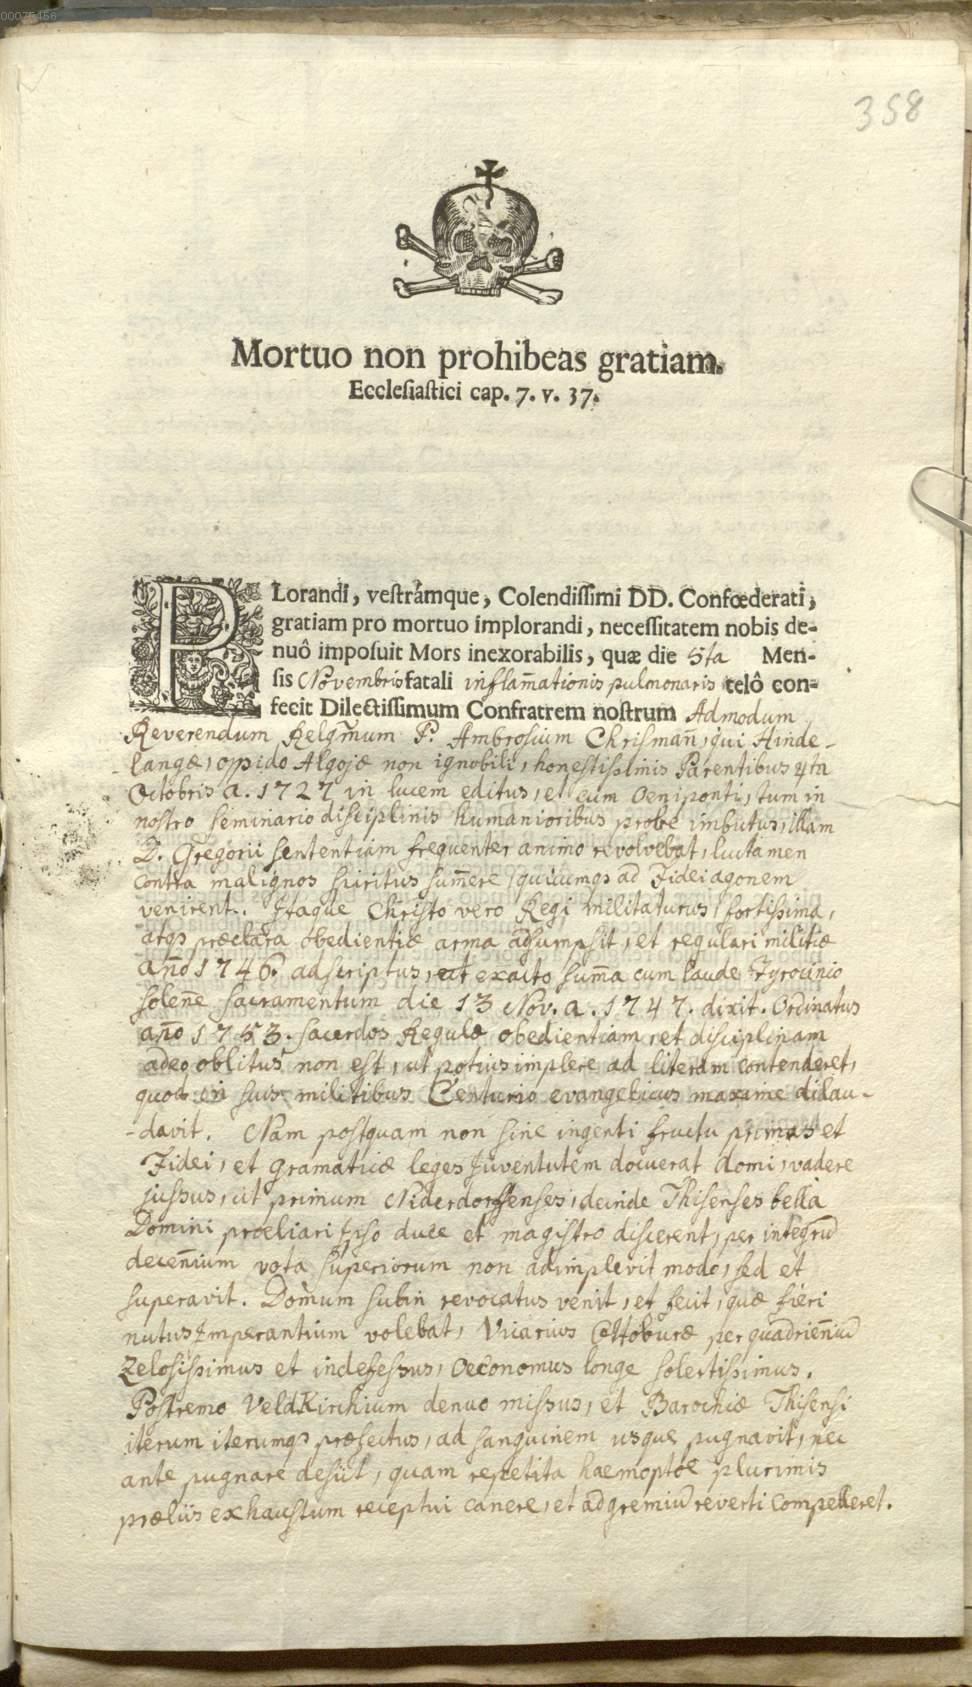 00075456
358
Mortuo non prohibeas gratiam.
Ecclesiastici cap. 7. v. 37.
PLorandi, vestrámque, Colendissimi DD. Confœderati,
gratiam pro mortuo implorandi, necessitatem nobis de-
nuô imposuit Mors inexorabilis, quæ die 5ta Men-
sis Novembris fatali inflam̄ationis pulmonaris telô con-
fecit Dilectissimum Confratrem nostrum Admodum
Reverendum Relgm̄um P. Ambrosium Chrisman̄, qui Hinde-
langæ, oppido Algojæ non ignobili, honestissimis Parentibus 4ta
Octobris a. 1727 in lucem editus, et cum Oeniponti, tum in
nostro Seminario disciplinis humanioribus probe imbutus, illam
D. Gregorii sententiam frequenter animo revolvebat, luctamen
contra malignos spiritus sum̄ere, quicumqs ad Fidei agonem
venirent. Itaque Christo vero Regi militaturus, fortissima,
atqs præclara obedientiæ arma adsumpsit, et regulari militiæ
an̄o 1746. adscriptus, et exacto sum̄a cum laude Tyrocinio
solen̄e sacramentum die 13 Nov. a. 1747. dixit. Ordinatus
an̄o 1753. sacerdos Regulæ obedientiam, et disciplinam
adeo oblitus non est, ut potius implere ad literam contenderet,
quod in suis militibus Centurio evangelicus maxime dilau-
-davit. Nam postquam non sine ingenti fructu primas et
Fidei, et gramaticæ leges Juventutem docuerat domi, vadere
jussus, ut primum Niderdorffenses, deinde Thisenses bella
Domini prœliari Ipso duce et magistro discerent, per integrū
decen̄ium vota superiorum non adimplevit modo, sed et
superavit. Domum subin revocatus venit, et fecit, quæ fieri
nutus Imperantium volebat, Vicarius Ottoburæ per quadrien̄iū
zelosissimus et indefessus, Oeconomus longe solertissimus.
Postremo Veldkirchium denuo missus, et Parochiæ Thisensi
iterum iterumqs præfectus, ad sanguinem usque pugnavit, nec
ante pugnare desiit, quam repetita haemoptoe plurimis
præliis exhaustum receptui canere, et ad gremiū reverti compelleret.